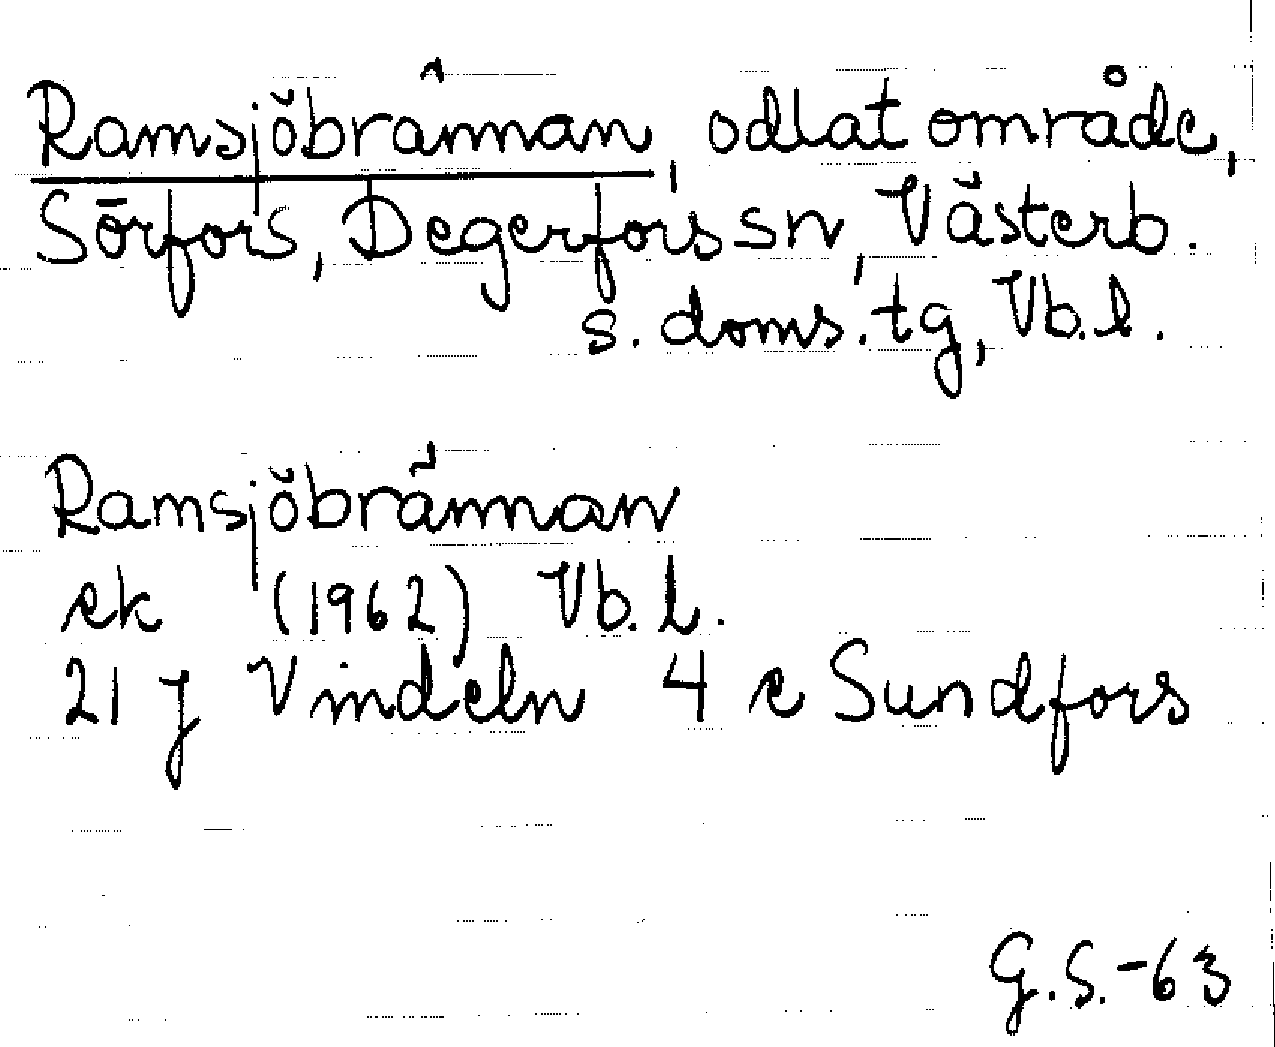 Ramsjöbrännan, odlat område,
Sörfors, Degerfors sn, Västerb.
s. doms. tg, Vb. l.
Ramsjöbrännan
ek (1962) Vb. l.
21 J Vindeln 4 c Sundfors
G.S.-63